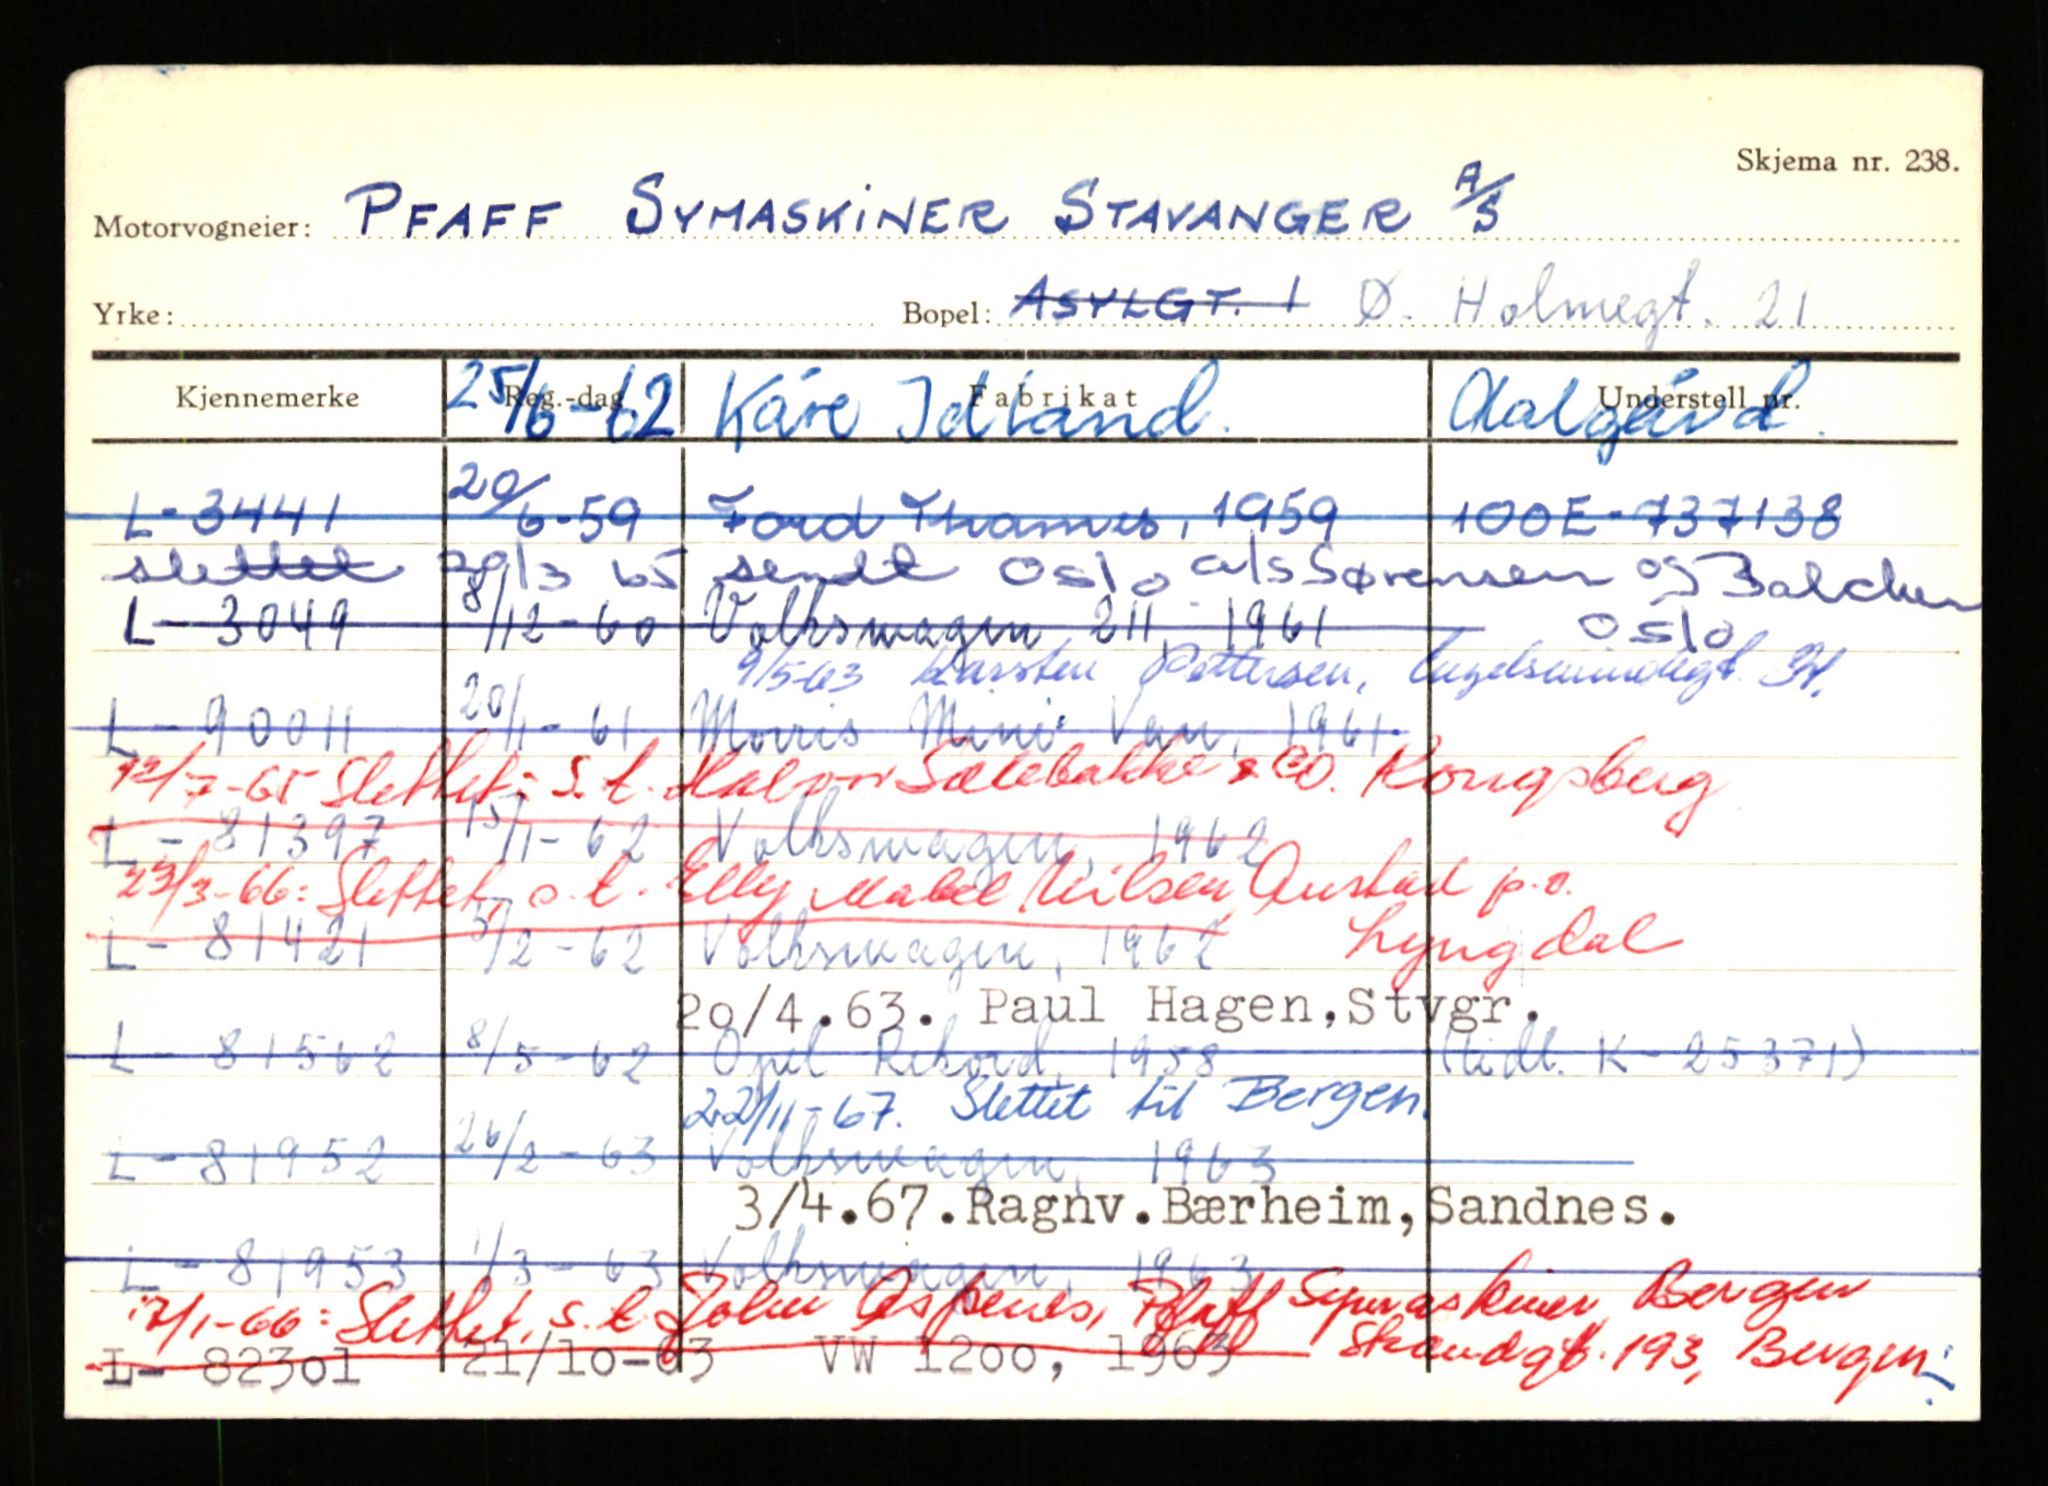 Skjema nr. 238.
Motorvogneier: PFAFF SYMASKINER STAVANGER A/S
Yrke: Bopel: ASYLGT. 1 Ø. Holmegt. 21
Kjennemerke Reg.-dag Fabrikat Understell nr.
25/6-62 Kåre Idland. Aalgård.
L-3441 20/6-59 Ford Thames, 1959 100E-737138
slettet 29/3 65 sendt Oslo a/s Sørensen og Balchen
Oslo
L-3049 8/12-60 Volkswagen 211, 1961
9/5-63 Karsten Pettersen, Engelsmindegt. 
L-90011 20/1-61 Morris Mini Van, 1961.
12/7-65 Slettet, s.t. Halvor Sælebakke & Co. Kongsberg
L-81397 15/1-62 Volkswagen, 1962
23/3-66: Slettet, s.t. Elly Mabel Nilsen, Austad p.o.
Lyngdal
L-81421 5/2-62 Volkswagen, 1962
20/4.63. Paul Hagen, Stvgr.
L-81562 8/5-62 Opel Rekord, 1958 (tidl. K-25371)
22/11-67. Slettet til Bergen.
L-81952 26/2-63 Volkswagen, 1963
3/4.67. Ragnv. Bærheim, Sandnes.
L-81953 1/3-63 Volkswagen, 1963
17/1-66: Slettet, s.t. John Aspenes, Pfaff Symaskiner Bergen
Strandgt. 193, Bergen.
L- 82301 21/10-63 VW 1200, 1963